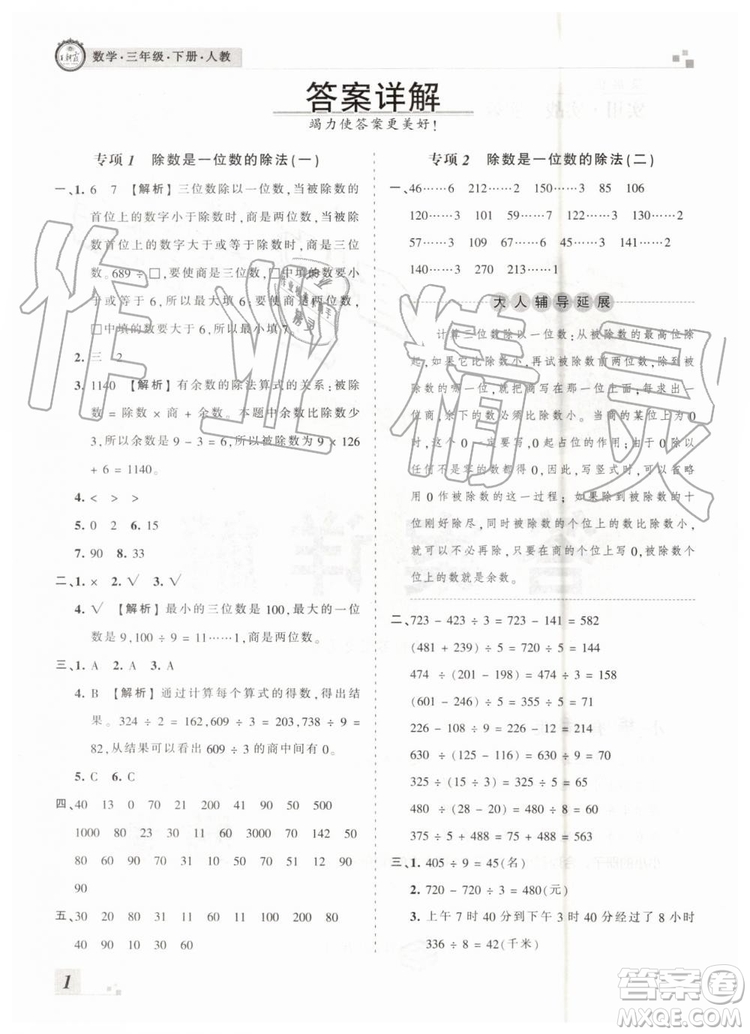 数学·三年级·下册·人教
答案详解
竭力使答案更美好！
专项1 除数是一位数的除法(一)
一、1. 6 7 【解析】三位数除以一位数,当被除数的
首位上的数字小于除数时,商是两位数,当被除数
首位上的数字大于或等于除数时,商是三位
数。689÷□,要使商是三位数,□中填的数要小
于或等于6,所以最大填6;要使商是两位数,
□中填的数要大于6,所以最小填7。
2. 三 2
3. 1140 【解析】有余数的除法算式的关系:被除
数=除数×商+余数。本题中余数比除数少
3,所以余数是9-3=6,所以被除数为9×126
+6=1140。
4. < > >
5. 0 2 6. 15
7. 90 8. 33
二、1. × 2. √ 3. √
4. √ 【解析】最小的三位数是100,最大的一位
数是9,100÷9=11……1,商是两位数。
三、1. A 2. A 3. A
4. B 【解析】通过计算每个算式的得数,得出结
果。324÷2=162,609÷3=203,738÷9=
82,从结果可以看出609÷3的商中间有0。
5. C 6. C
四、40 13 0 70 21 200 50 500
1000 80 23 30 70 80 60 200
90
五、30 20 80 60 1000 110 200
40 90 90 90 50
专项2 除数是一位数的除法(二)
一、46……6 212 150……3 85 106
120……3 58……5 130……3 151……2
57……5 60……3 110……3 105……4
140……3 270……1
大人辅导延展
计算三位数除以一位数:从被除数的最高位除
起,如果它比除数小,再试被除数前两位,除到被除
数的哪一位,就把商写在那一位上面;每求出一
位商,余数必须比除数小。当商的某位上的数是0
时,这个0一定要写,0起占位的作用;由于0除以
任何不是零的数都得0,写竖式时,可以省略
用0被除数的这一过程;如果除到被除数的十
位刚好除尽,而被除数的个位上的数比除数小,
就可以不必再除,只要在商的个位上写0,被除数个
位上的数就是余数。
二、723-423÷3=723-141=582
(481+239)÷5=720÷5=144
474÷(601-595)=474÷6=79
(601-246)÷5=355÷5=71
226-108÷9=226-12=214
630÷(125-116)=630÷9=70
325÷(15÷3)=325÷5=65
480÷(28-20)=480÷8=60
375÷5+488=75+488=563
三、1. 405÷9=45(名)
2. 720-720÷3=480(元)
3. 上午7时40分到下午3时40分经过了8小时
336÷8=42(千米)
1
作业精灵
答案圈
MXQE.COM